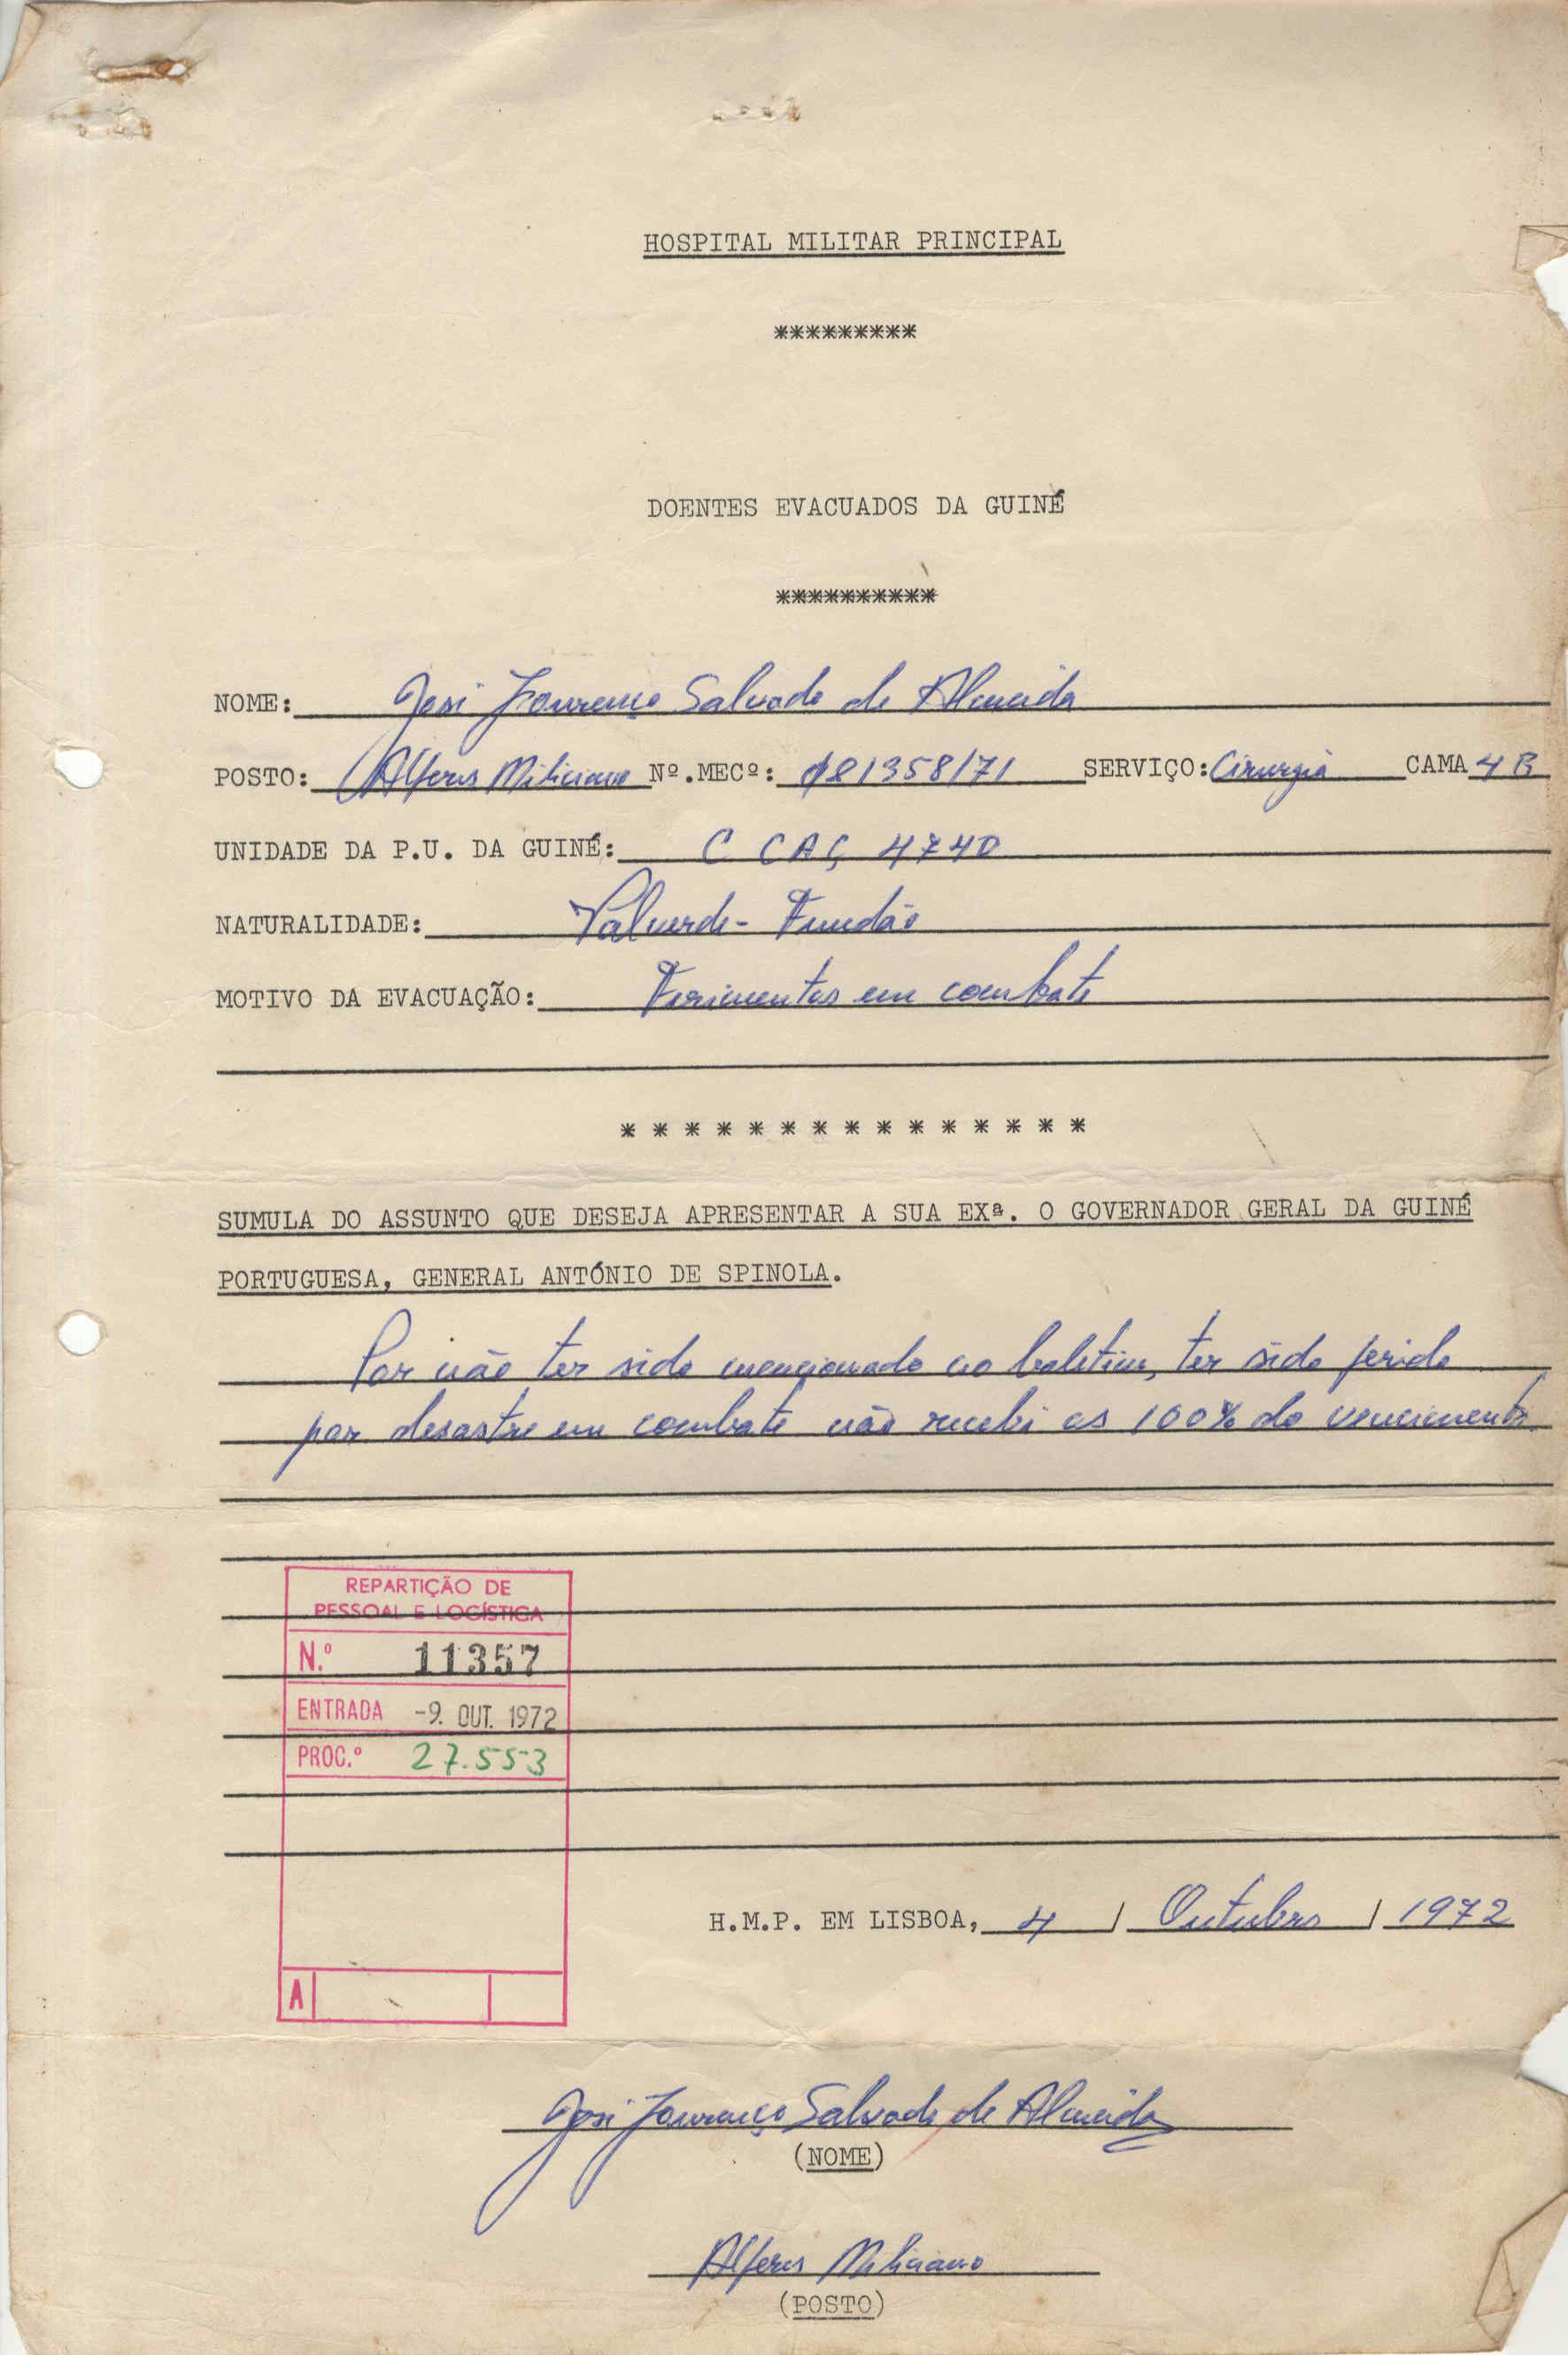 HOSPITAL MILITAR PRINCIPAL
*********
DOENTES EVACUADOS DA GUINÉ
**********
NOME: José Lourenço Salvado de Almeida
POSTO: Alferes Miliciano Nº.MECº: 081358/71 SERVIÇO: Cirurgia CAMA 4 B
UNIDADE DA P.U. DA GUINÉ: C CAÇ 4740
NATURALIDADE: Valverde - Fundão
MOTIVO DA EVACUAÇÃO: Ferimentos em combate
* * * * * * * * * * * * * * *
SUMULA DO ASSUNTO QUE DESEJA APRESENTAR A SUA EXª. O GOVERNADOR GERAL DA GUINÉ
PORTUGUESA, GENERAL ANTÓNIO DE SPINOLA.
Por não ter sido mencionado no boletim, ter sido ferido
por desastre em combate não recebi os 100% do vencimento.
REPARTIÇÃO DE
PESSOAL E LOGÍSTICA
N.º 11357
ENTRADA -9. OUT. 1972
PROC.º 27.553
H.M.P. EM LISBOA, 4 / Outubro / 1972
A
José Lourenço Salvado de Almeida
(NOME)
Alferes Miliciano
(POSTO)